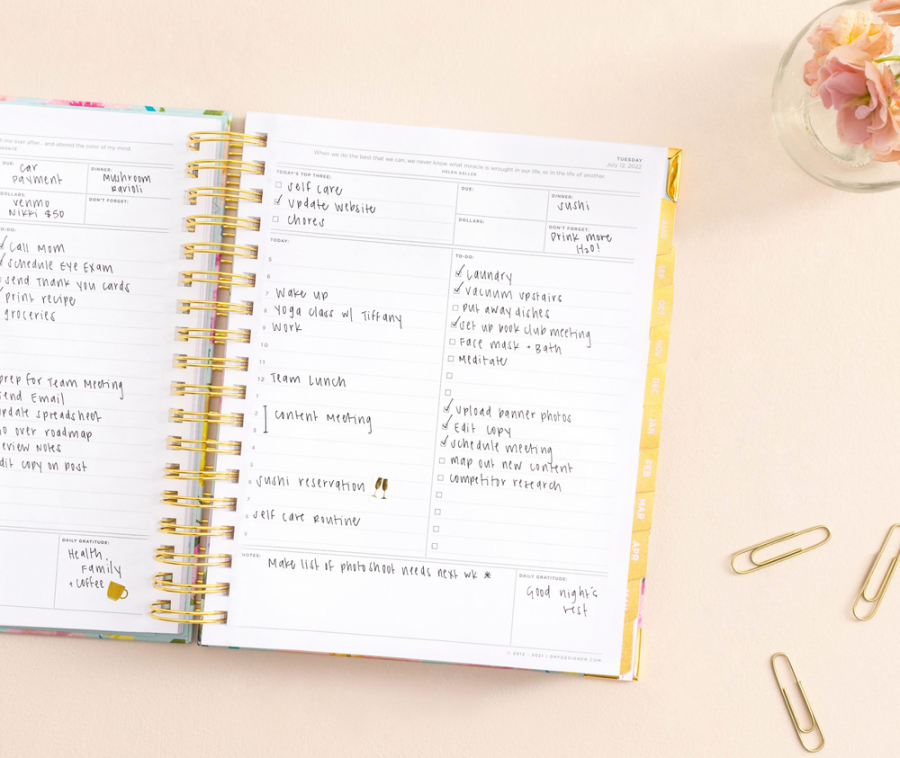 me ever after... and altered the color of my mind.
DUE:
Car
payment
DINNER:
Mushroom
Ravioli
DOLLARS:
Venmo
Nikki $50
DON'T FORGET:
TO-DO:
Call Mom
Schedule Eye Exam
Send Thank you cards
Print recipe
groceries
Prep for Team Meeting
Send Email
update spreadsheet
Go over roadmap
Review Notes
Edit copy on post
DAILY GRATITUDE:
Health,
Family
+ Coffee
TUESDAY
July 12, 2022
When we do the best that we can, we never know what miracle is wrought in our life, or in the life of another.
HELEN KELLER
TODAY'S TOP THREE:
Self care
Update Website
Chores
DUE:
DINNER:
Sushi
DOLLARS:
DON'T FORGET:
Drink more
H2O!
TODAY:
5
6
7 Wake up
8 Yoga Class w/ Tiffany
9 Work
10
11
12 Team Lunch
1
2 Content Meeting
3
4
5
6 Sushi reservation
7
8 Self care Routine
9
TO-DO:
Laundry
Vacuum upstairs
Put away dishes
Set up book club meeting
Face mask + Bath
Meditate
Upload banner photos
Edit Copy
Schedule meeting
Map out new content
Competitor research
NOTES:
Make list of photoshoot needs next wk *
DAILY GRATITUDE:
Good night's
rest
© 2012 - 2021 | DAYDESIGNER.COM
AUG
SEP
OCT
NOV
DEC
JAN
FEB
MAR
APR